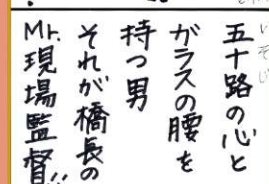 五十路の心と
ガラスの腰を
持つ男
それが橋長の
Mr.現場監督!!